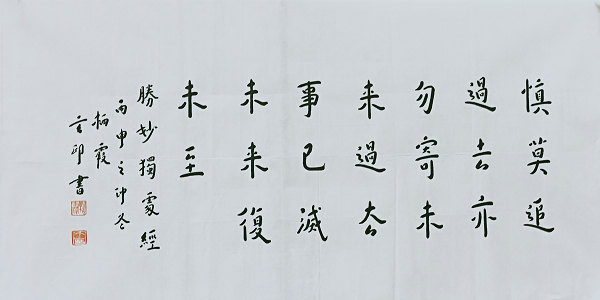 慎莫追
過去亦
勿寄未
来過去
事已滅
未来復
未至
勝妙獨處經
丙申之沖冬
栖霞
玄印書